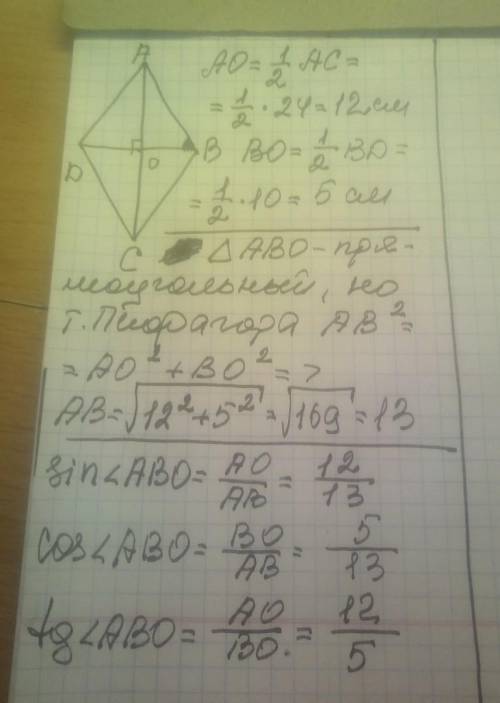 A
AO = 1/2 AC =
= 1/2 · 24 = 12 см
D O B
BO = 1/2 BD =
= 1/2 · 10 = 5 см
C
△ABO - пря-
моугольный, по
т. Пифагора AB² =
= AO² + BO² = >
AB = √12² + 5² = √169 = 13
sin∠ABO = AO/AB = 12/13
cos∠ABO = BO/AB = 5/13
tg∠ABO = AO/BO. = 12/5